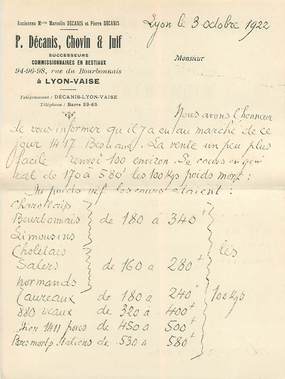 Anciennes Mons Marcelin DECANIS et Pierre DECANIS
P. Décanis, Chovin & Juif
SUCCESSEURS
COMMISSIONNAIRES EN BESTIAUX
94-96-98, rue du Bourbonnais
à LYON-VAISE
Télégrammes : DÉCANIS-LYON-VAISE
Téléphone : Barre 29-65
Lyon le 3 octobre 1922
Monsieur
Nous avons l'honneur
de vous informer qu'il y a eu au marché de ce
jour 1417 Bestiaux. La vente un peu plus
facile renvoi 100 environ. Le cours en général
de 170 à 580 les 100 Kgs poids mort :
Au poids net les cours étaient :
Charolais
Bourbonnais de 180 à 340
Limousins
Cholelais
Salers de 160 à 280
normands
Taureaux de 180 à 240
880 veaux de 320 à 400
de 450 à 500
de 530 à 580
les
100 Kgs